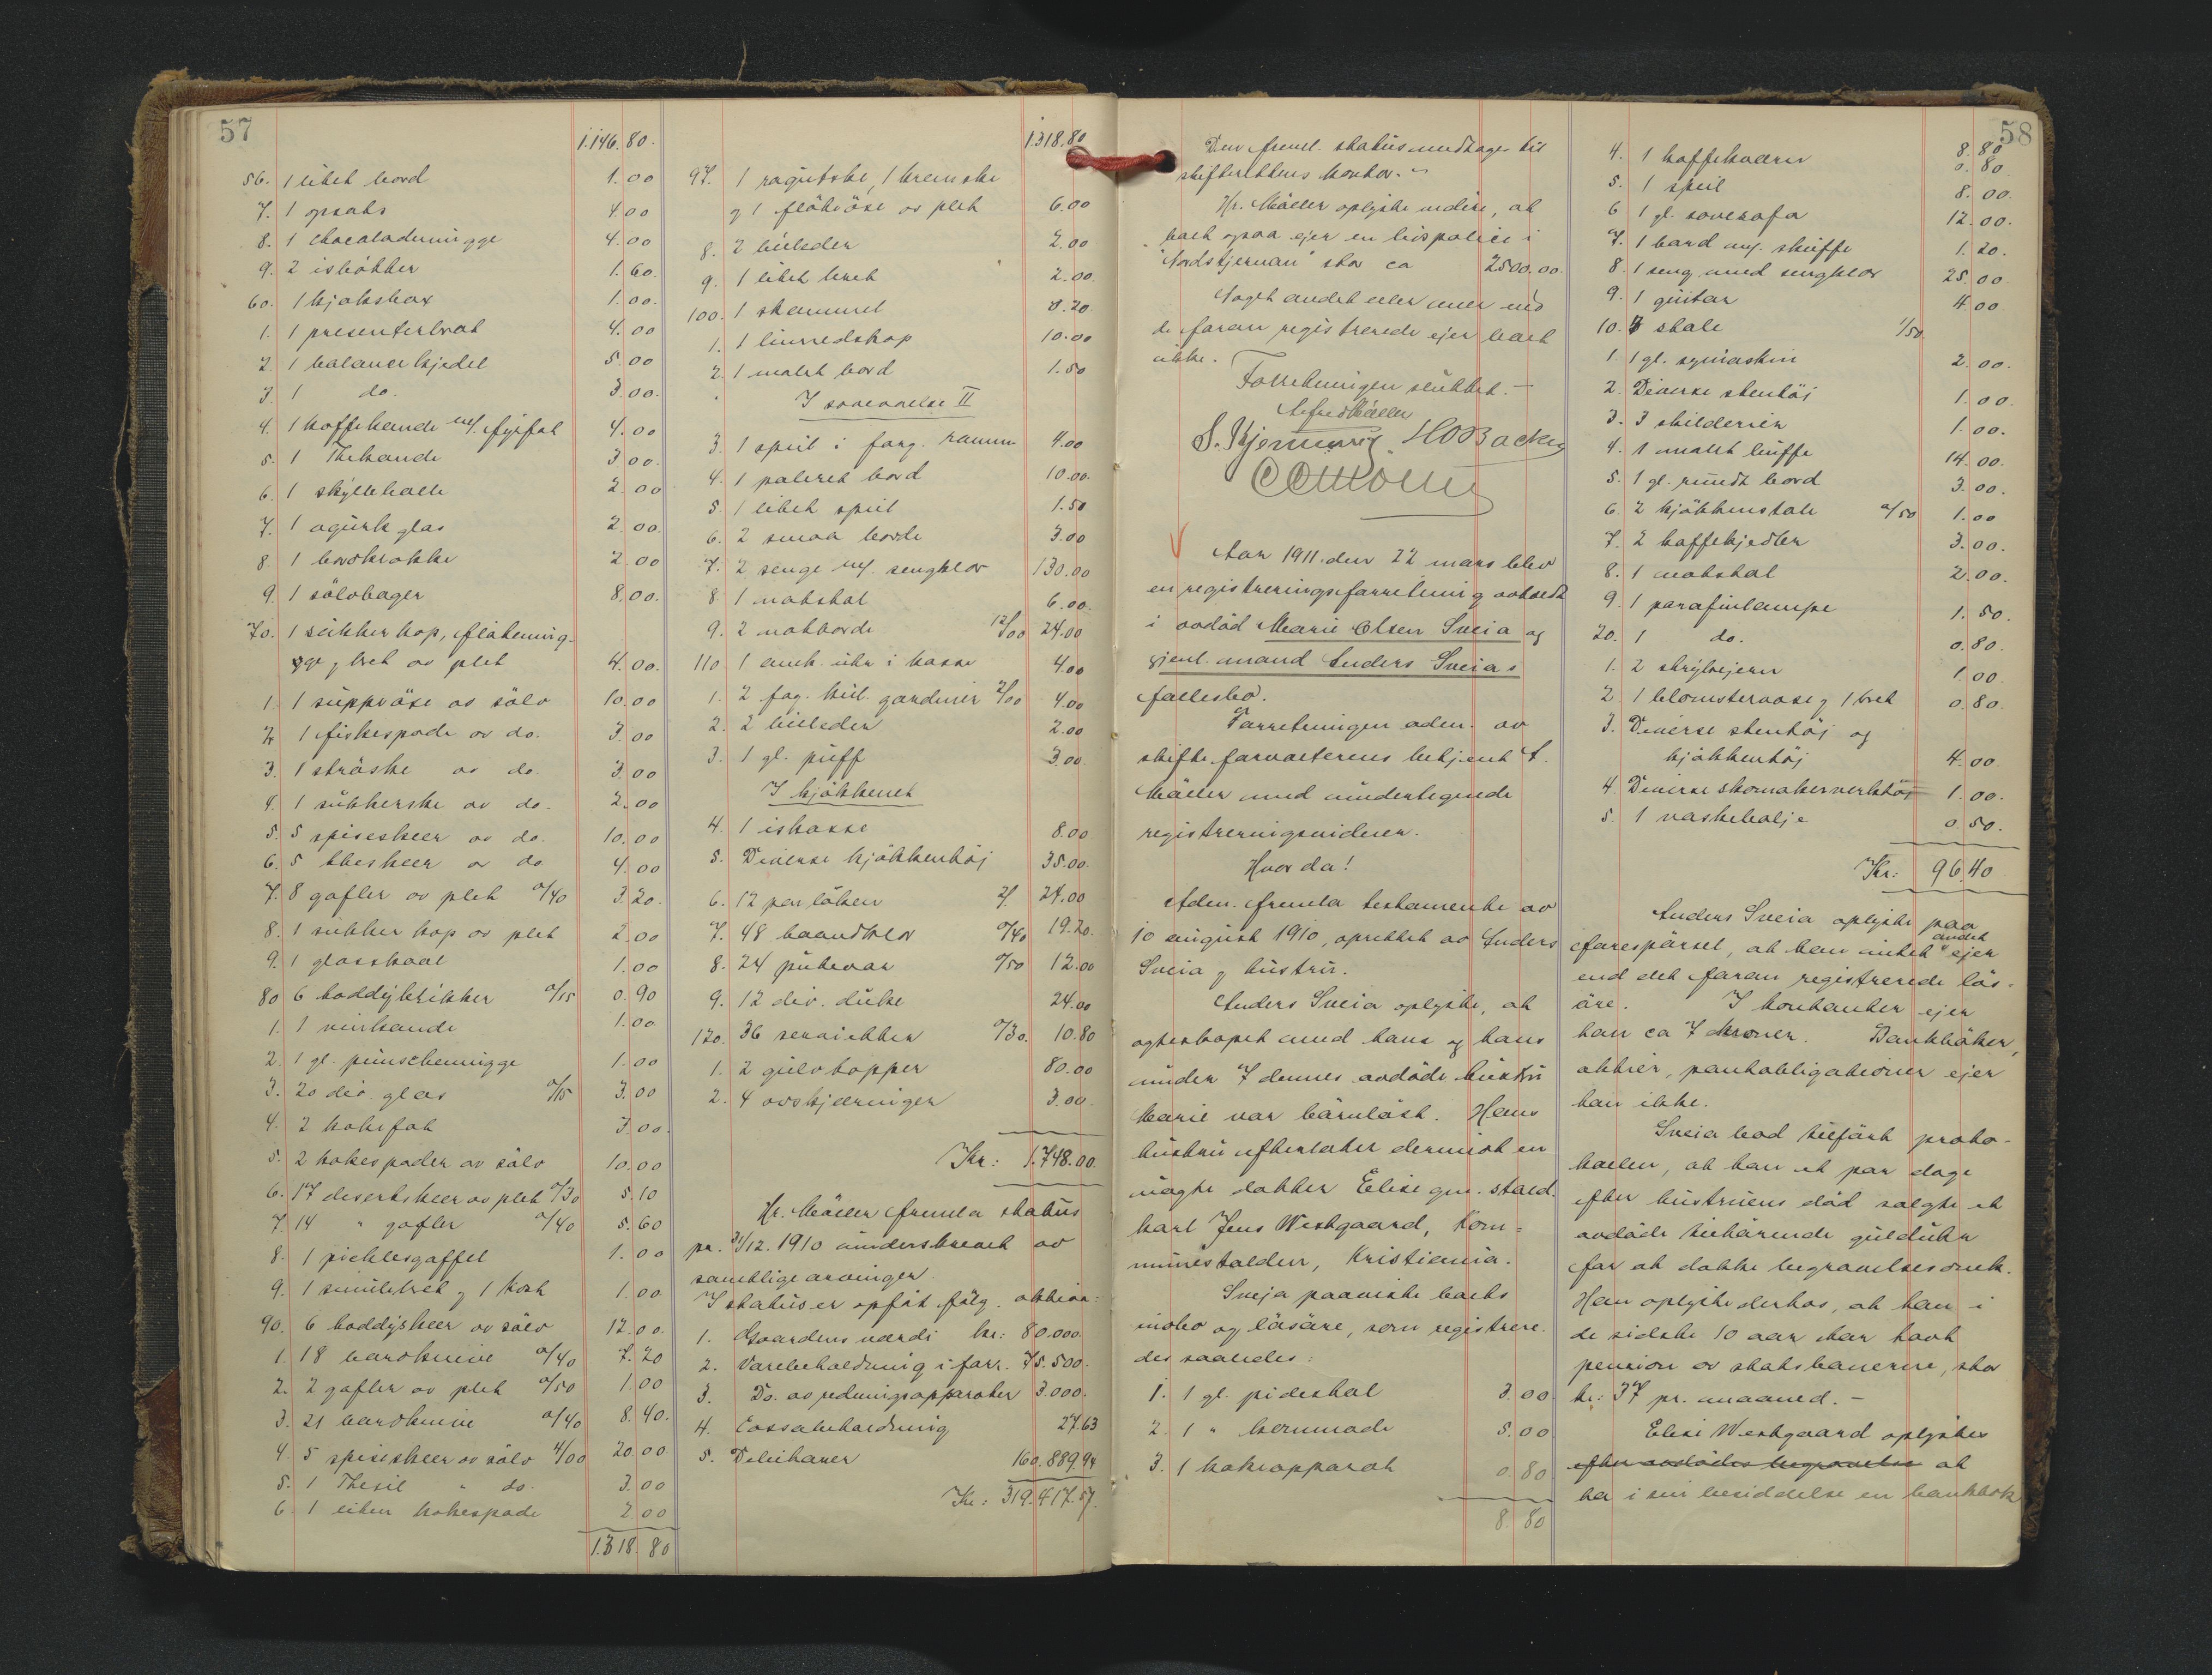 57
1.146.80.
56. 1 litet bord 1.00
7. 1 opsats 4.00
8. 1 chocolademugge 4.00
9. 2 isbøtter 1.60.
60. 1 kjøkskar 1.00.
1. 1 presenterbrat 4.00
2. 1 balance kjedel 5.00
3. 1 do. 3.00.
4. 1 kaffekande m/. fyrfat 4.00
5. 1 Thekande 3.00.
6. 1 skyllebalie 2.00
7. 1 agurk glas 2.00.
8. 1 bordkrakke 2.00
9. 1 sølvbager 8.00.
70. 1 sukker kop, fløtemug-
ge og bret av plet 4.00.
1. 1 suppeøse av sølv 10.00
2. 1 fiskespade av do. 3.00
3. 1 strøske av do. 3.00
4. 1 sukkerske av do. 2.00
5. 5 spiseskeer av do. 10.00
6. 5 theskeer av do 4.00
7. 8 gafler av plet 0/40 3.20.
8. 1 sukker kop av plet 2.00
9. 1 glasskaal 1.00
80 6 toddybrikker 0/15 0.90
1. 1 vinkande 1.00.
2. 1 gl. punschemugge 1.00
3. 20 div. glas 0/15 3.00
4. 2 kakefat 3.00.
5. 2 kakespader av sølv 10.00
6. 17 desertskeer av plet 0/30 5.10
7 14 " gafler 0/40 5.60
8. 1 picklesgaffel 1.00
9. 1 smulebret og 1 kost 1.00
90. 6 toddyskeer av sølv 12.00.
1. 18 bordknive 0/40 7.20
2. 2 gafler av plet 0/50 1.00
3. 21 bordknive 0/40 8.40.
4. 5 spiseskeer av sølv 4/00 20.00
5. 1 Thesil " do. 3.00
6. 1 liten kakespade 2.00
1.318.80
1318.80
97. 1 ragutske, 1 kremske
og 1 fløteøse av plet 6.00
8. 2 billeder 2.00
9. 1 litet bret 2.00.
100. 1 skammel 0.20.
1. 1 linnedskap 10.00
2. 1 malet bord 1.50
I soveværelse II
3. 1 speil i forg. ramme 4.00
4. 1 poleret bord 10.00.
5. 1 litet speil 1.50
6. 2 smaa borde 3.00
7. 2 senge m/. sengklær 130.00
8. 1 natstol 6.00.
9. 2 natborde 12/00 24.00
110 1 amk. uhr i kasse 4.00
1. 2 fag. hul. gardiner 2/00 4.00
2. 2 billeder 2.00
3. 1 gl. puff 3.00.
I kjøkkenet
4. 1 iskasse 8.00
5. Diverse kjøkkentøj 35.00.
6. 12 par laken 2/. 24.00
7. 48 haandklær 0/40 19.20.
8. 24 putevar 0/50 12.00
9. 12 div. duke 24.00
120. 36 servietter 0/30. 10.80
1. 2 gulvtepper 80.00
2. 4 avskjæringer 3.00.
Kr: 1.748.00.
Hr. Møller fremla status
pr. 31/12. 1910 underskrevet av
samtlige arvinger.
I status er opført følg. aktiva:
1. Gaardens værdi kr: 80.000.
2. Varebeholdning i forr. 75.500.
3. Do. av redningsapparater 3.000.
4. Cassabeholdning 27.63
5. Debitorer 160.889.94
Kr: 319.417.57.
58
Den freml. status medtages til
skifterettens kontor. –
Hr. Møller oplyste videre, at
boet ogsaa ejer en livspolice i
"Nordstjernan" stor ca 2500.00.
Noget andet eller mer end
de foran registrerede ejer boet
ikke.
Forretningen sluttet. –
Alfred Møller
HO Backe
Aar 1911 den 22 mars blev
en registreringsforretning avholdt
i avdød Marie Olsen Sveia og
gjenl. mand Anders Sveias
fællesbo.
Forretningen adm. av
skifteforvalterens betjent A.
Møller med undertegnede
registreringsvidner.
Hvor da!
Adm. fremla testamente av
10 august 1910, oprettet av Anders
Sveia og hustru.
Anders Sveia oplyste, at
egteskapet med hans og hans
under 7 dennes avdøde hustru
Marie var barnløst. Hans
hustru efterlater derimot en
uægte datter Elise gm. stald-
karl Jens Westgaard, Kom=
munestalden, Kristiania.
Sveja paaviste boets
indbo og løsøre, som registrere-
des saaledes:
1. 1 gl. pidestal 3.00
2. 1 " kommode 5.00
3. 1 kokeapparat 0.80
8.80
8.80
4. 1 kaffekværn 0.80
5. 1 speil 8.00.
6 1 gl. sovesofa 12.00.
7. 1 bord m/. skuffe 1.20.
8. 1 seng med sengklær 25.00
9. 1 guitar 4.00
10. 3 stole 1/50.
1. 1 gl. symaskin 2.00.
2. Diverse stentøj 1.00.
3. 3 skilderier 1.00.
4. 1 malet kuffe 14.00.
5. 1 gl. rundt bord 3.00.
6. 2 kjøkkenstole 0/50 1.00
7. 2 kaffekjedler 3.00.
8. 1 natstol 2.00.
9. 1 parafinlampe 1.50.
20. 1 do. 0.80.
1. 2 strykejern 1.00.
2. 1 blomstervase og 1 bret 0.80.
3. Diverse stentøj og
kjøkkentøj 4.00
4. Diverse skomakerverktøi 1.00.
5. 1 vaskebalje 0.50.
Kr: 96.40
Anders Sveia oplyste paa
forespørsel, at han intet andet ejer
end det foran registrerede løs-
øre. I kontanter ejer
han ca 7 kroner. Bankbøker,
aktier, pantobligationer ejer
han ikke.
Sveia bad tilført proto-
kollen, at han et par dage
efter hustruens død solgte et
avdøde tilhørende gulduhr
for at dække begravelsesomk.
Han oplyste derhos, at han i
de sidste 10 aar har havt
pension av statsbanerne, stor
kr: 37 pr. maaned. –
Elise Westgaard oplystes
efter avdødes begravelse at
ha i sin besiddelse en bankbok